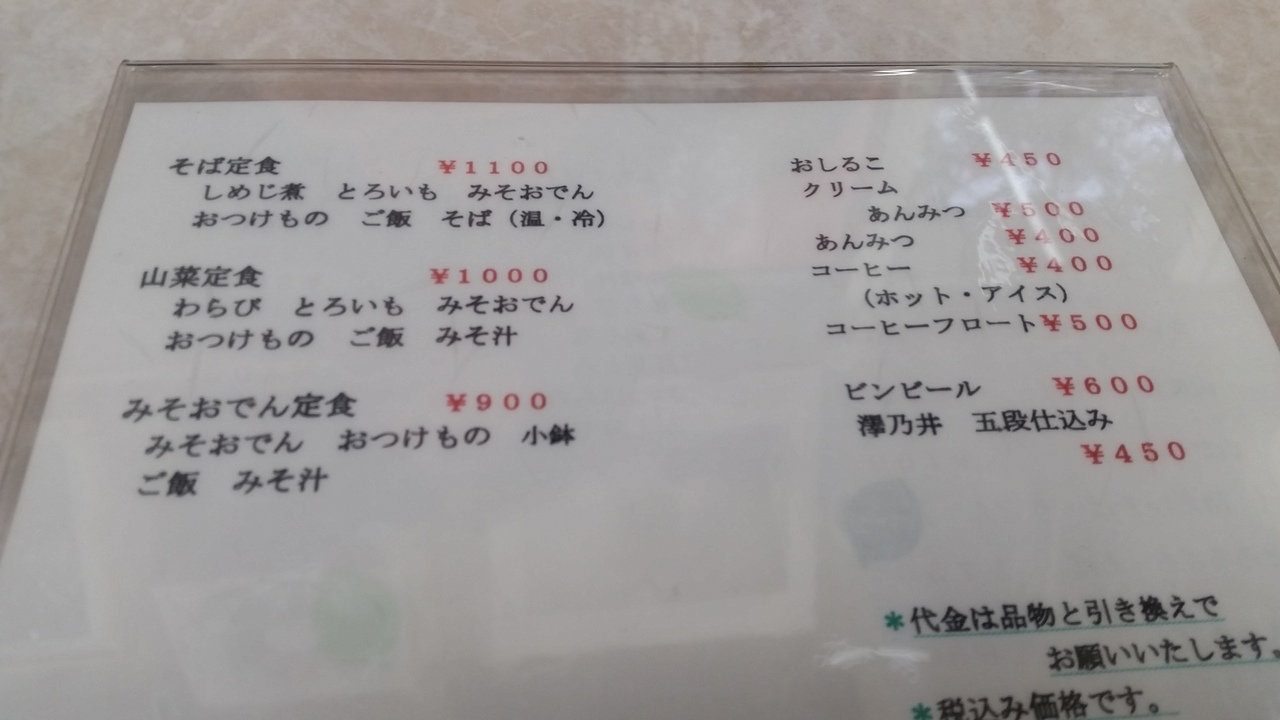 そば定食 ￥１１００
しめじ煮 とろいも みそおでん
おつけもの ご飯 そば（温・冷）
山菜定食 ￥１０００
わらび とろいも みそおでん
おつけもの ご飯 みそ汁
みそおでん定食 ￥９００
みそおでん おつけもの 小鉢
ご飯 みそ汁
おしるこ ￥４５０
クリーム
あんみつ ￥５００
あんみつ ￥４００
コーヒー ￥４００
（ホット・アイス）
コーヒーフロート￥５００
ビンビール ￥６００
澤乃井 五段仕込み
￥４５０
＊代金は品物と引き換えで
お願いいたします。
＊税込み価格です。